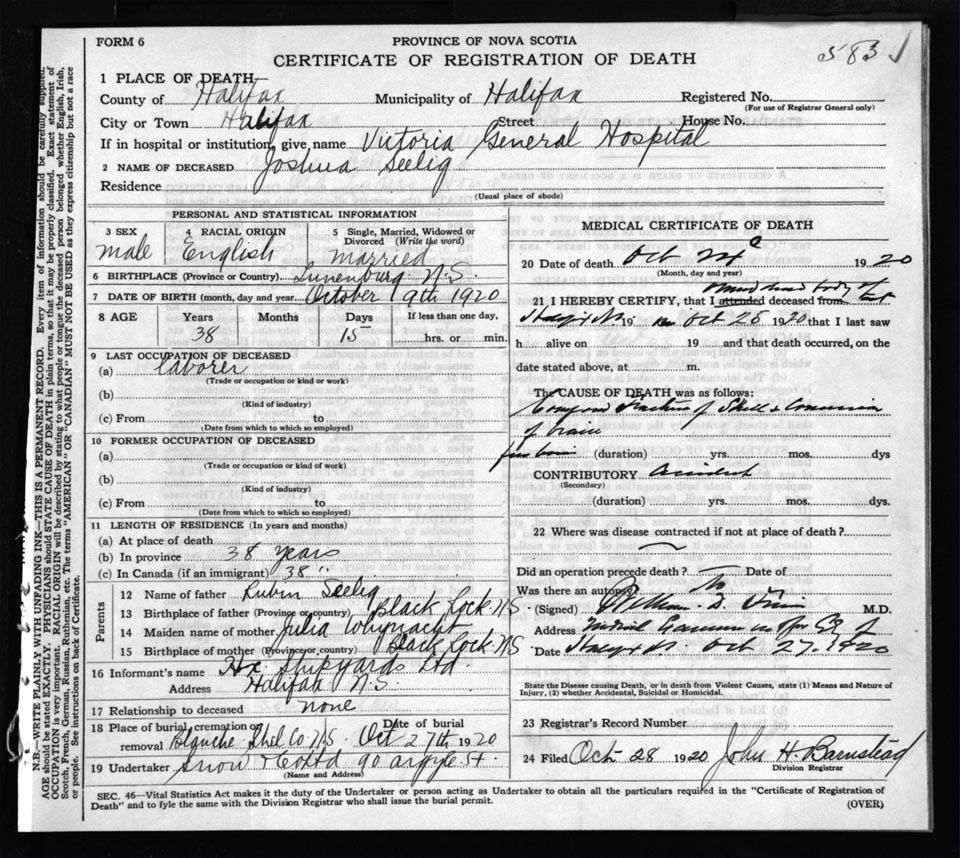 FORM 6
PROVINCE OF NOVA SCOTIA
583
CERTIFICATE OF REGISTRATION OF DEATH
1 PLACE OF DEATH—
County of Halifax Municipality of Halifax Registered No.
(For use of Registrar General only)
City or Town Halifax Street House No.
If in hospital or institution, give name Victoria General Hospital
2 NAME OF DECEASED Joshua Seelig
Residence
(Usual place of abode)
PERSONAL AND STATISTICAL INFORMATION
3 SEX 4 RACIAL ORIGIN 5 Single, Married, Widowed or Divorced (Write the word)
male English married
6 BIRTHPLACE (Province or Country) Lunenburg N.S.
7 DATE OF BIRTH (month, day and year) October 9th 1920
8 AGE Years Months Days If less than one day,
38 15 hrs. or min.
9 LAST OCCUPATION OF DECEASED
(a) Laborer
(Trade or occupation or kind or work)
(b)
(Kind of industry)
(c) From to
(Date from which to which employed)
10 FORMER OCCUPATION OF DECEASED
(a)
(Trade or occupation or kind of work)
(b)
(Kind of industry)
(c) From to
(Date from which to which so employed)
11 LENGTH OF RESIDENCE (In years and months)
(a) At place of death
(b) In province 38 years
(c) In Canada (if an immigrant) 38 "
Parents
12 Name of father Rubin Seelig
13 Birthplace of father (Province or country) Black Rock N.S
14 Maiden name of mother Julia Whynacht
15 Birthplace of mother (Province or country) Black Rock N.S
16 Informant's name Hx. Shipyards Ltd.
Address Halifax N.S.
17 Relationship to deceased none
18 Place of burial, cremation or removal Blanche Shel Co. N.S. Date of burial Oct 27th 1920
19 Undertaker Snow & Co Ltd 90 Argyle St.
(Name and Address)
MEDICAL CERTIFICATE OF DEATH
20 Date of death Oct 24 1920
(Month, day and year)
21 I HEREBY CERTIFY, that I attended deceased from
viewed dead body of
19 Oct 25 1920 that I last saw
h alive on 19 and that death occurred, on the
date stated above, at m.
The CAUSE OF DEATH was as follows:
Compound Fracture of Skull &
of brain
(duration) yrs. mos. dys
CONTRIBUTORY Accident
(Secondary)
(duration) yrs. mos. dys.
22 Where was disease contracted if not at place of death?
Did an operation precede death? Date of
Was there an autopsy?
(Signed) William D. M.D.
Address Medical Examiner
Date Oct 27. 1920
State the Disease causing Death, or in death from Violent Causes, state (1) Means and Nature of
Injury, (2) whether Accidental, Suicidal or Homicidal.
23 Registrar's Record Number
24 Filed Oct 28 1920 John H Barnstead
Division Registrar
SEC. 46—Vital Statistics Act makes it the duty of the Undertaker or person acting as Undertaker to obtain all the particulars required in the "Certificate of Registration of
Death" and to fyle the same with the Division Registrar who shall issue the burial permit.
(OVER)
N.B.—WRITE PLAINLY WITH UNFADING INK—THIS IS A PERMANENT RECORD. Every item of information should be carefully supplied.
AGE should be stated EXACTLY. PHYSICIANS should STATE CAUSE OF DEATH in plain terms, so that it may be properly classified. Exact statement of
OCCUPATION is very important. RACIAL ORIGIN will be described by stating to what people or tongue the deceased person belonged whether English, Irish,
Scotch, French, German, Russian, Ruthenian, etc. The terms "AMERICAN" OR "CANADIAN" MUST NOT BE USED as they express citizenship but not a race
or people. See instructions on back of Certificate.